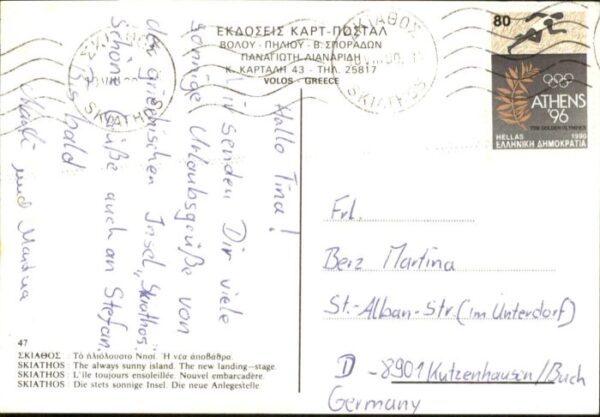 ΕΚΔΟΣΕΙΣ ΚΑΡΤ-ΠΟΣΤΑΛ
ΒΟΛΟΥ - ΠΗΛΙΟΥ - Β. ΣΠΟΡΑΔΩΝ
ΠΑΝΑΓΙΩΤΗ ΔΙΑΝΑΡΙΔΗ
Κ. ΚΑΡΤΑΛΗ 43 - ΤΗΛ. 25817
VOLOS - GREECE
ΣΚΙΑΘΟΣ
SKIATHOS
ΣΚΙΑΘΟΣ
SKIATHOS
80
ATHENS
'96
THE GOLDEN OLYMPICS
HELLAS 1990
ΕΛΛΗΝΙΚΗ ΔΗΜΟΚΡΑΤΙΑ
Hallo Tina!
Wir senden Dir viele
sonnige Urlaubsgrüße von
der griechischen Insel „Skiathos".
Schöne Grüße auch an Stefan.
Bis bald
und Martina
Frl.
Berz Martina
St.-Alban-Str. (im Unterdorf)
D-8901 Kutzenhausen/Buch
Germany
47
ΣΚΙΑΘΟΣ : Τὸ ἡλιόλουστο Νησί. Ἡ νέα ἀποβάθρα.
SKIATHOS : The always sunny island. The new landing-stage.
SKIATHOS : L'île toujours ensoleillée. Nouvel embarcadère.
SKIATHOS : Die stets sonnige Insel. Die neue Anlegestelle